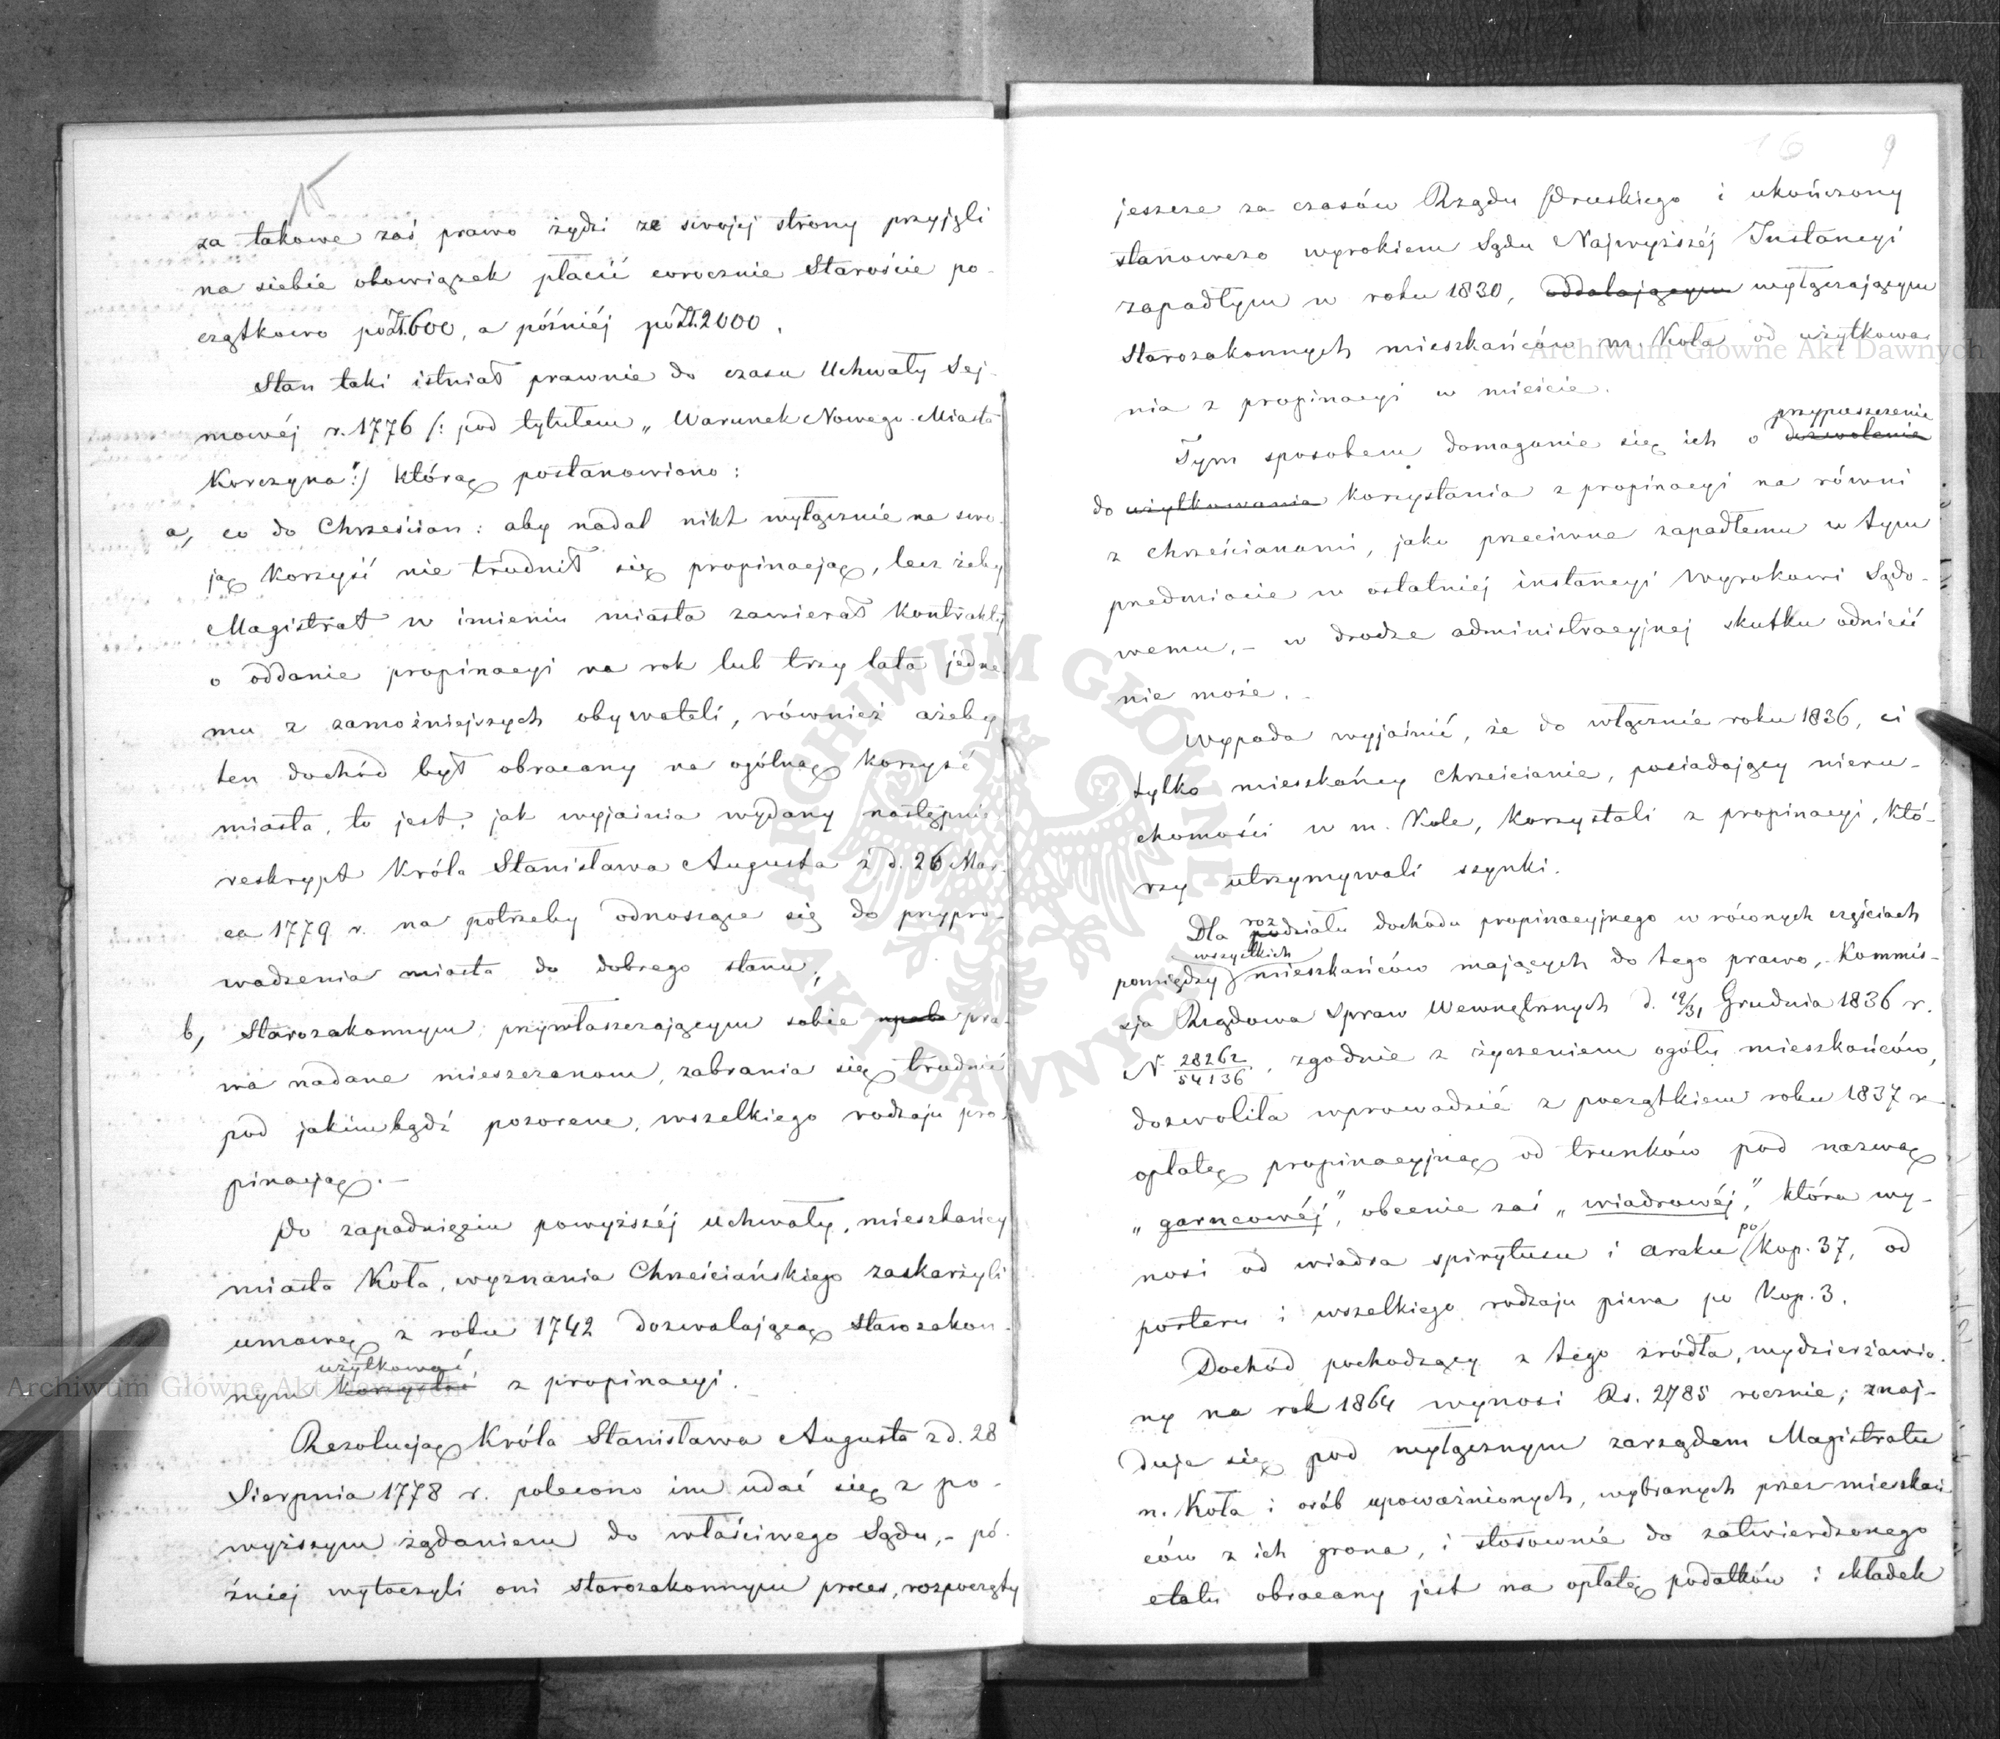 15
za takowe zaś prawo żydzi ze swojej strony przyjęli
na siebie obowiązek płacić corocznie Staroście po-
czątkowo po Zł. 600, a późniéj po Zł. 2000.
Stan taki istniał prawnie do czasu Uchwały Sej-
mowéj r. 1776 /: pod tytułem „Warunek Nowego-Miasta
Korczyna":/ którą postanowiono:
a, co do Chrześcian: aby nadal nikt wyłącznie na swo-
ją korzyść nie trudnił się propinacją, lecz żeby
Magistrat w imieniu miasta zawierał Kontrakty
o oddanie propinacyi na rok lub trzy lata jedne-
mu z zamożniejszych obywateli, również ażeby
ten dochód był obracany na ogólną korzyść
miasta, to jest, jak wyjaśnia wydany następnie
reskrypt Króla Stanisława Augusta z d. 26 Mar-
ca 1779 r. na potrzeby odnoszące się do przypro-
wadzenia miasta do dobrego stanu,
b, Starozakonnym, przywłaszczającym sobie pra-
wa nadane mieszczanom, zabrania się trudnić
pod jakimbądź pozorem, wszelkiego rodzaju pro-
pinacją.—
Po zapadnięciu powyższéj uchwały, mieszkańcy
miasta Koła, wyznania Chrześciańskiego zaskarżyli
umowę z roku 1742 dozwalającą starozakon-
użytkować
nym korzystać z propinacyi.
Rezolucją Króla Stanisława Augusta z d. 28
Sierpnia 1778 r. polecono im udać się z po-
wyższym żądaniem do właściwego Sądu,- pó-
źniej wytoczyli oni starozakonnym proces, rozpoczęty
16 9
jeszcze za czasów Rządu Pruskiego i ukończony
stanowczo wyrokiem Sądu Najwyższéj Instancyi
zapadłym w roku 1830, oddalającym wyłączającym
Starozakonnych mieszkańców m. Koła od użytkowa-
nia z propinacyi w mieście.
przypuszczenie
Tym sposobem domaganie się ich o dozwolenie
do użytkowania korzystania z propinacyi na równi
z chrześcianami, jako przeciwne zapadłemu w tym
przedmiocie w ostatniéj instancyi wyrokowi Sądo-
wemu,- w drodze administracyjnej skutku odnieść
nie może.-
Wypada wyjaśnić, że do włącznie roku 1836, ci
tylko mieszkańcy chrześcianie, posiadający nieru-
chomości w m. Kole, korzystali z propinacyi, któ-
rzy utrzymywali szynki.
roz
Dla podziału dochodu propinacyjnego w równych częściach
wszystkich
pomiędzy mieszkańców mających do tego prawo,- Kommis-
sja Rządowa Spraw Wewnętrznych d. 19/31 Grudnia 1836 r.
N. 28262/54136, zgodnie z życzeniem ogółu mieszkańców,
dozwoliła wprowadzić z początkiem roku 1837 r.
opłatę propinacyjną od trunków pod nazwą
„garncowéj", obecnie zaś „wiadrowéj," która wy-
po
nosi od wiadra spirytusu i araku Kop. 37, od
porteru i wszelkiego rodzaju piwa po Kop. 3.
Dochód pochodzący z tego źródła, wydzierżawio-
ny na rok 1864 wynosi Rs. 2785 rocznie; znaj-
duje się pod wyłącznym zarządem Magistratu
m. Koła i osób upoważnionych, wybranych przez mieszkań-
ców z ich grona, i stosownie do zatwierdzonego
etatu obracany jest na opłatę podatków i składek
Archiwum Główne Akt Dawnych
Archiwum Główne Akt Dawnych
ARCHIWUM GŁÓWNE AKT DAWNYCH